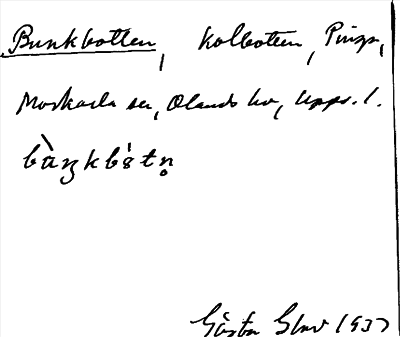 Bunkbotten, kolbotten, Pings,
Morkarla sn, Olands hd, Upps. l.
bàŋkbòtn̥
Gösta Glav 1937